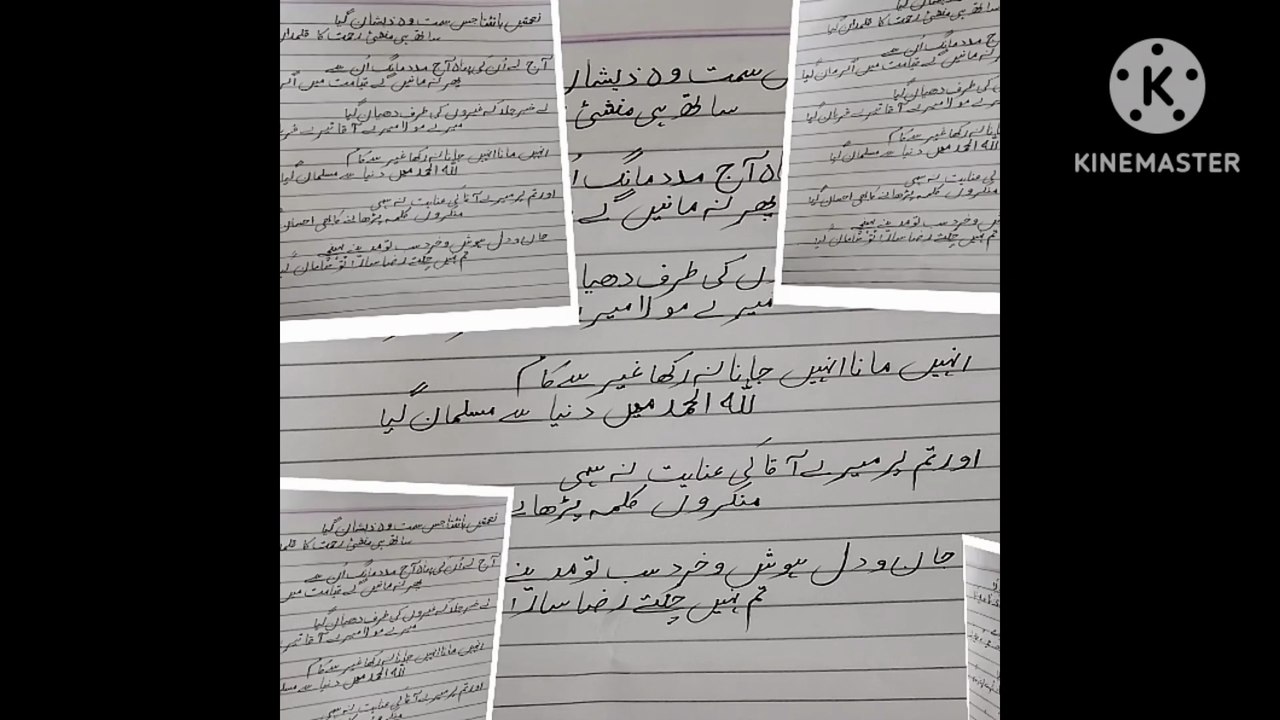 نعمتیں بانٹتا جس سمت وہ ذیشان گیا
ساتھ ہی منشئ رحمت کا قلمدان
آج لے اُن کی پناہ آج مدد مانگ اُن سے
پھر نہ مانیں گے قیامت میں اگر
لے خبر جلد کہ غیروں کی طرف دھیان گیا
میرے مولا میرے آقا تیرے قربان
انہیں مانا انہیں جانا نہ رکھا غیر سے کام
للہ الحمد میں دنیا سے مسلمان گیا
اور تم پر میرے آقا کی عنایت نہ سہی
منکروں کلمہ پڑھانے کا بھی احسان
جان و دل ہوش و خرد سب تو مدینے پہنچے
تم نہیں چلتے رضا سارا تو سامان گیا
سمت وہ ذیشان
ساتھ ہی منشئ
آج مدد مانگ
پھر نہ مانیں گے
کی طرف دھیا
میرے مولا میرے
انہیں مانا انہیں جانا نہ رکھا غیر سے کام
للہ الحمد میں دنیا سے مسلمان گیا
اور تم پر میرے آقا کی عنایت نہ سہی
منکروں کلمہ پڑھانے
جان و دل ہوش و خرد سب تو مدینے
تم نہیں چلتے رضا سارا
مدد مانگ اُن سے
پھر نہ مانیں گے قیامت میں اگر مان گیا
کی طرف دھیان گیا
میرے آقا تیرے قربان گیا
جانا نہ رکھا غیر سے کام
للہ الحمد میں دنیا سے مسلمان گیا
کی عنایت نہ سہی
منکروں کلمہ پڑھانے کا بھی احسان گیا
و خرد سب تو مدینے پہنچے
تم نہیں چلتے رضا سارا تو سامان گیا
نعمتیں بانٹتا جس سمت وہ ذیشان گیا
ساتھ ہی منشئ رحمت کا قلمد
آج لے اُن کی پناہ آج مدد مانگ اُن سے
پھر نہ مانیں گے قیامت میں
لے خبر جلد کہ غیروں کی طرف دھیان گیا
میرے مولا میرے آقا تیر
انہیں مانا انہیں جانا نہ رکھا غیر سے کام
للہ الحمد میں دنیا سے مسلم
اور تم پر میرے آقا کی عنایت نہ سہی
KINEMASTER